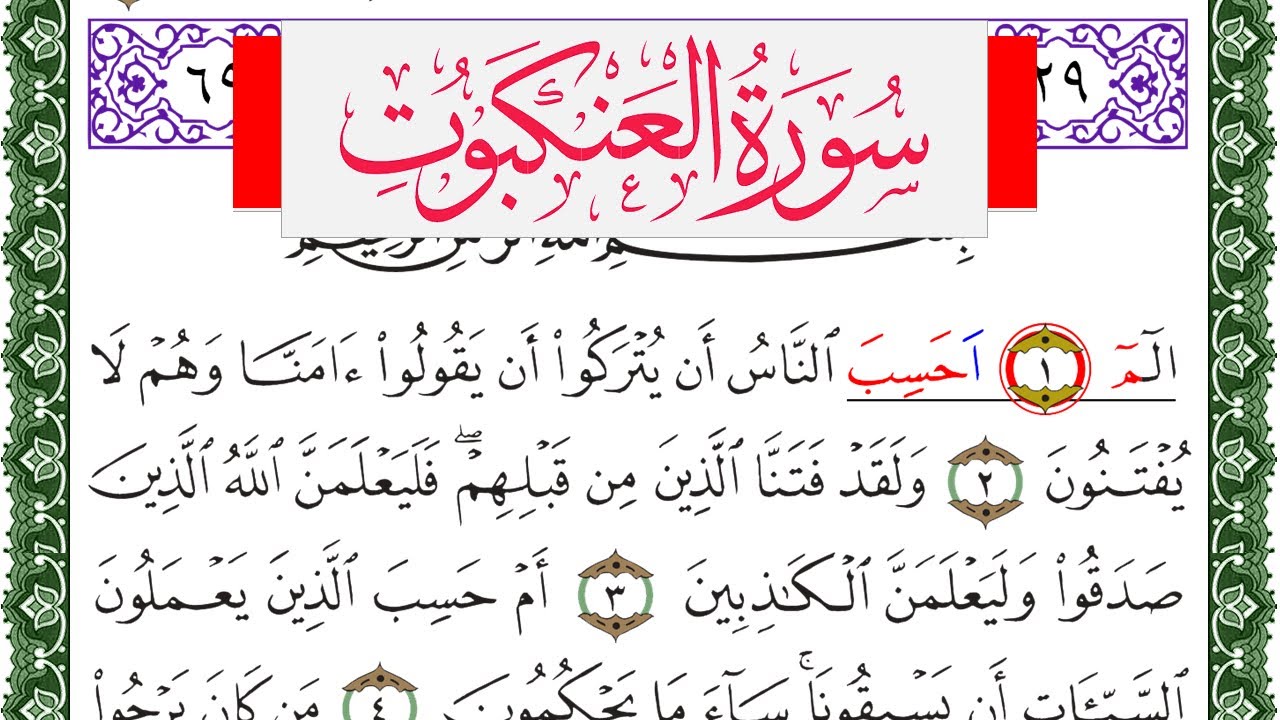 ٢٩ سُورَةُ الْعَنكَبُوتِ ٦٩
بسم الله الرحمن الرحيم
الٓمٓ ١ اَحَسِبَ ٱلنَّاسُ أَن يُتْرَكُوا۟ أَن يَقُولُوا۟ ءَامَنَّا وَهُمْ لَا
يُفْتَنُونَ ٢ وَلَقَدْ فَتَنَّا ٱلَّذِينَ مِن قَبْلِهِمْ ۖ فَلَيَعْلَمَنَّ ٱللَّهُ ٱلَّذِينَ
صَدَقُوا۟ وَلَيَعْلَمَنَّ ٱلْكَـٰذِبِينَ ٣ أَمْ حَسِبَ ٱلَّذِينَ يَعْمَلُونَ
ٱلسَّيِّـَٔاتِ أَن يَسْبِقُونَا ۚ سَآءَ مَا يَحْكُمُونَ ٤ مَن كَانَ يَرْجُوا۟